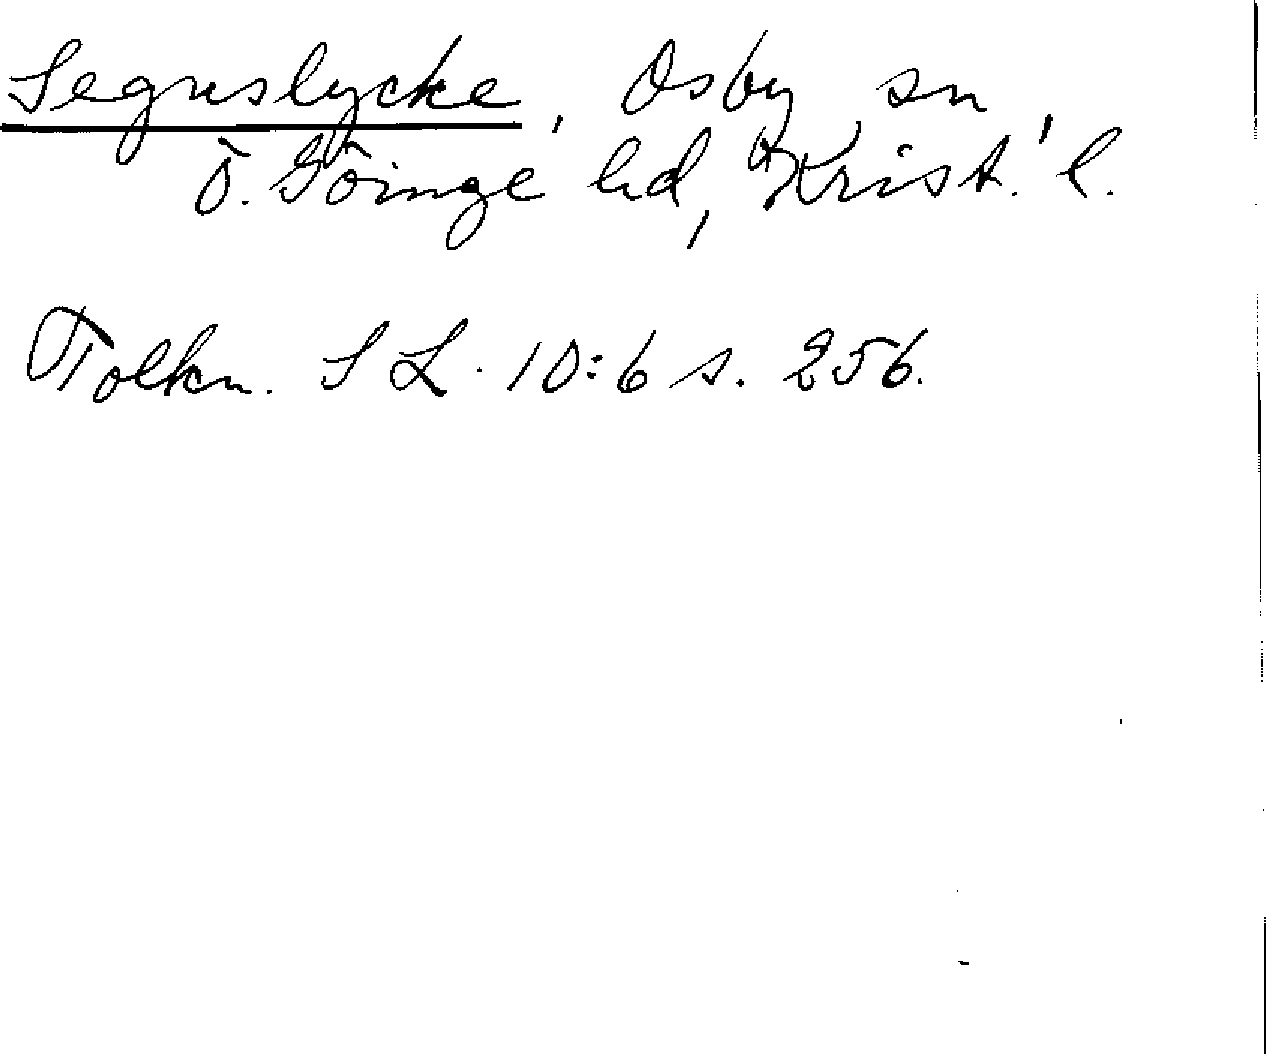 Segnslycke, Osby sn
Ö. Göinge hd, Krist. l.
Tolkn. SL. 10:6 s. 256.